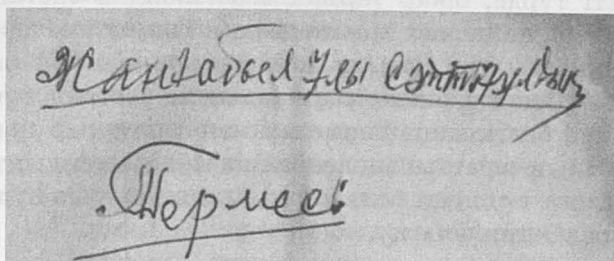 Жанғабыл Ұлы Сәттіғұлдың
Термесі